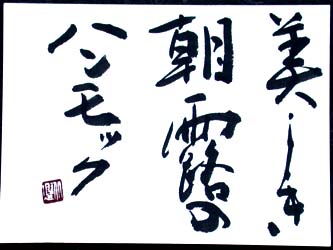 美しき
朝露の
ハンモック